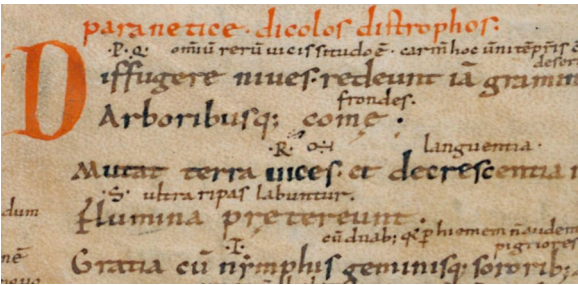 paranetice · dicolos distrophos:
·P·Q· omiū rerū uicissitudo ē · carm hoc
Diffugere niues · redeunt iā gramin
frondes·
Arboribusq; comę ·
·R· languentia ·
Mutat terra uices · et decrescentia
·S· ultra ripas labuntur ·
flumina pretereunt ·
dum
cū duab;
pigriores
·T·
Gratia cū nymphis geminisq; sororib;